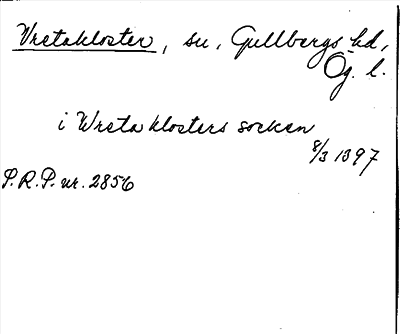 Vretakloster, su, Gullbergs hd,
Ög. l.
i Wreta klosters socken
8/3 1397
P.R.P. nr. 2856